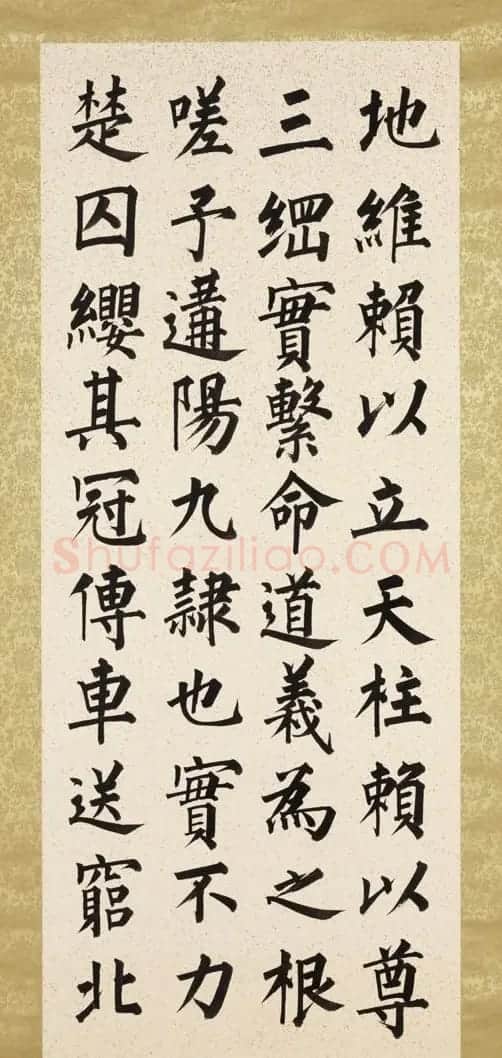 地維賴以立天柱賴以尊
三綱實繫命道義為之根
嗟予遘陽九隸也實不力
楚囚纓其冠傳車送窮北
Shufaziliao.COM